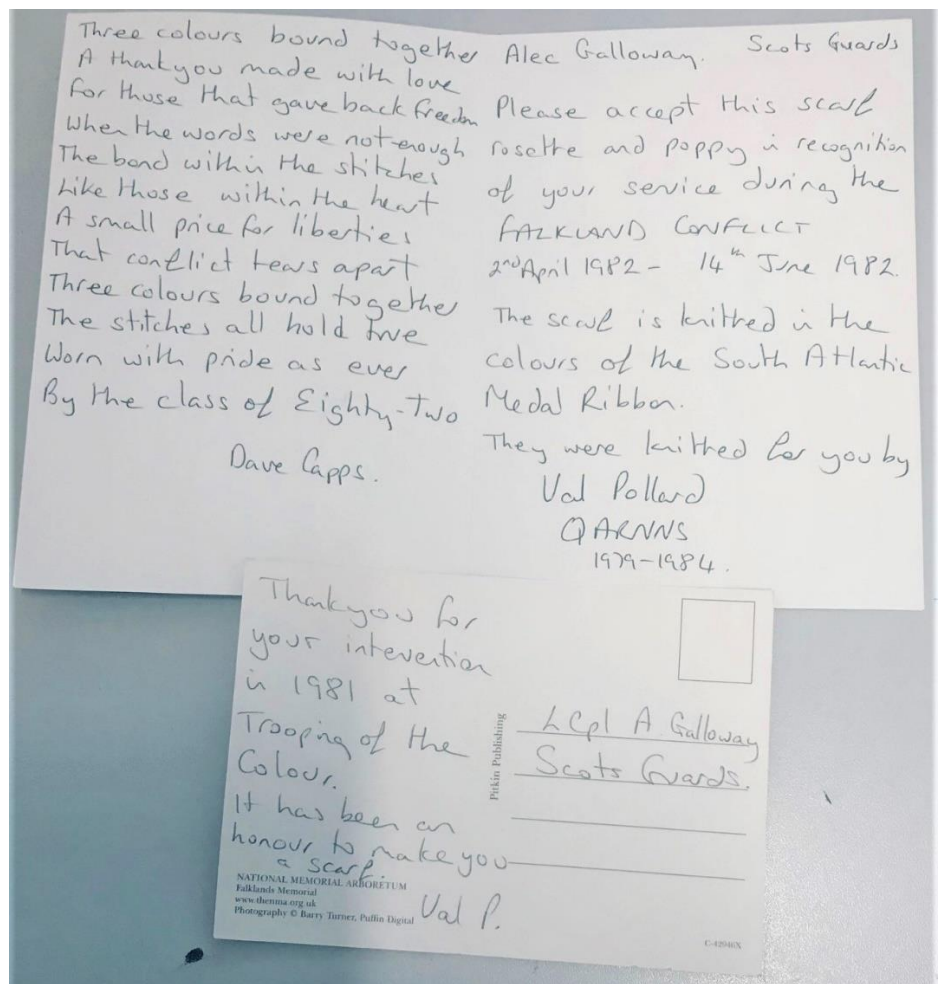 Three colours bound together
A thankyou made with love
For those that gave back freedom
When the words were not enough
The bond within the stitches
Like those within the heart
A small price for liberties
That conflict tears apart
Three colours bound together
The stitches all hold true
Worn with pride as ever
By the class of Eighty-Two
Dave Capps.
Alec Galloway. Scots Guards
Please accept this scarf
rosette and poppy in recognition
of your service during the
FALKLAND CONFLICT
2nd April 1982 - 14th June 1982.
The scarf is knitted in the
colours of the South Atlantic
Medal Ribbon.
They were knitted for you by
Val Pollard
QARNNS
1979-1984.
Thankyou for
your intevention
in 1981 at
Trooping of the
Colour.
It has been an
honour to make you
a scarf.
Val P.
NATIONAL MEMORIAL ARBORETUM
Falklands Memorial
www.thenma.org.uk
Photography © Barry Turner, Puffin Digital
Pitkin Publishing
LCpl A Galloway
Scots Guards.
C-42946X